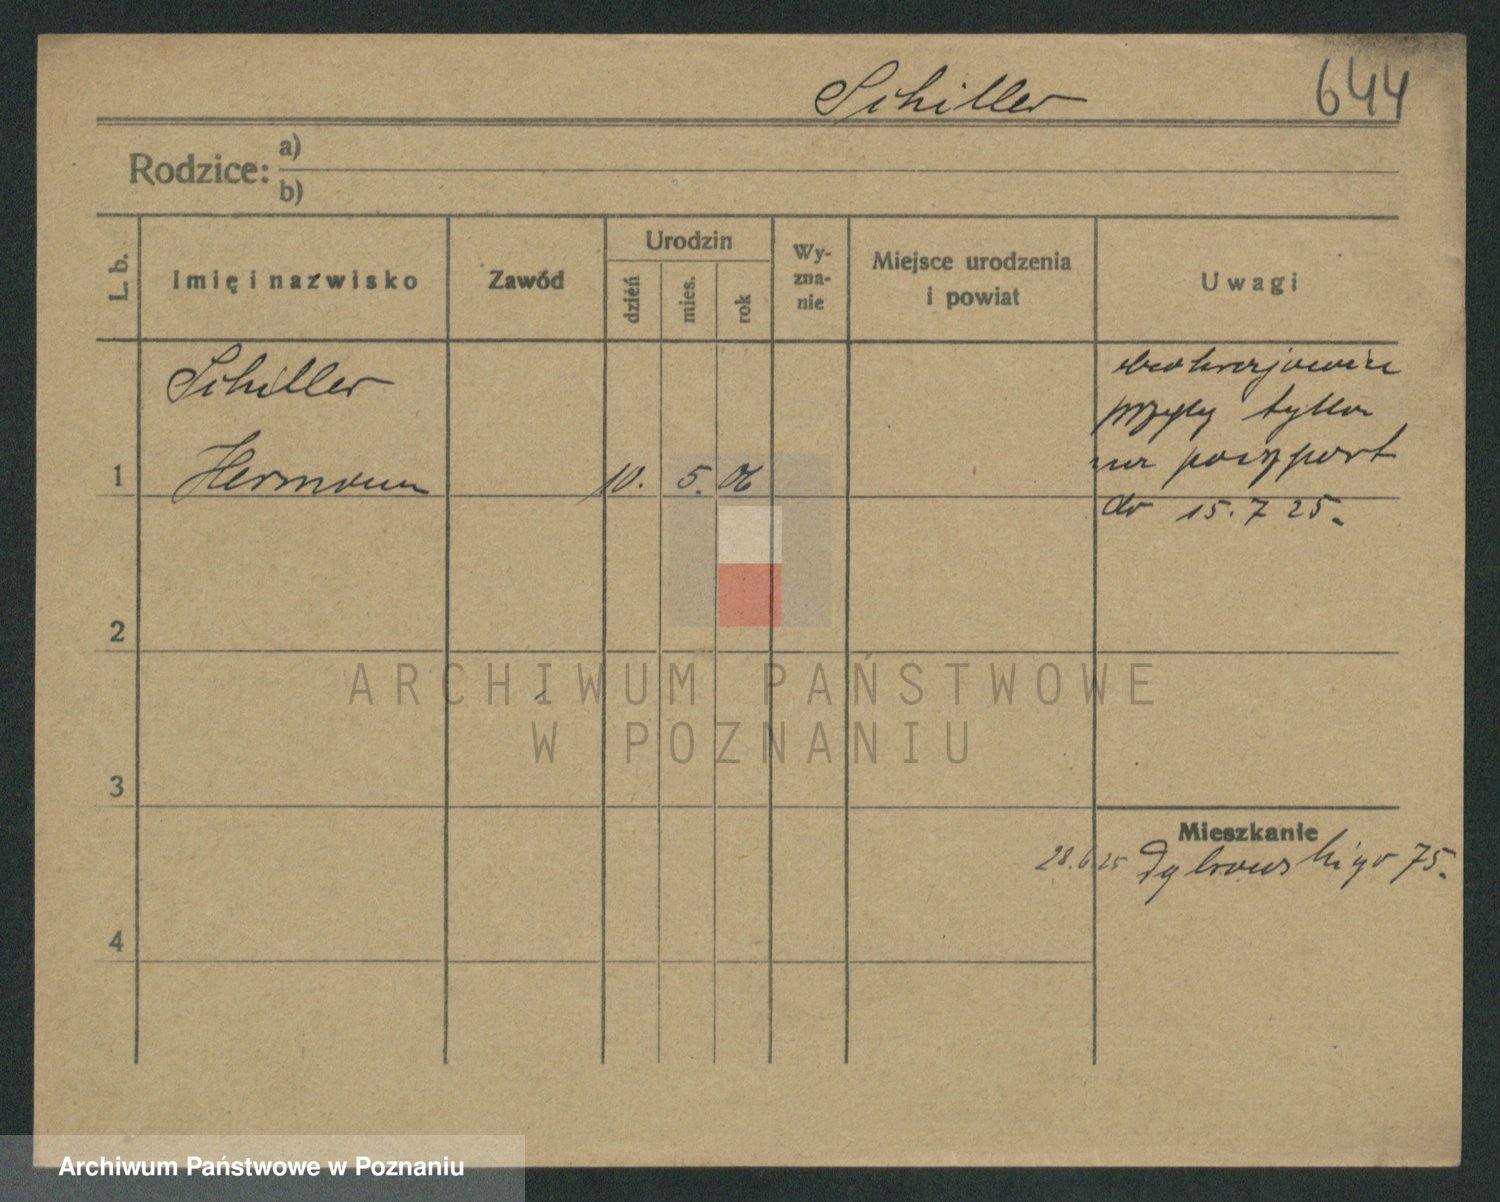 Schiller
644
Rodzice:
a)
b)
L. b.
Imię i nazwisko
Zawód
Urodzin
dzień
mies.
rok
Wy-
zna-
nie
Miejsce urodzenia
i powiat
Uwagi
Schiller
Hermann
1
10. 5. 06
tylko
na paszport
do 15.7 25.
2
ARCHIWUM PAŃSTWOWE
W POZNANIU
3
Mieszkanie
28.6.25 Dąbrowskiego 75.
4
Archiwum Państwowe w Poznaniu